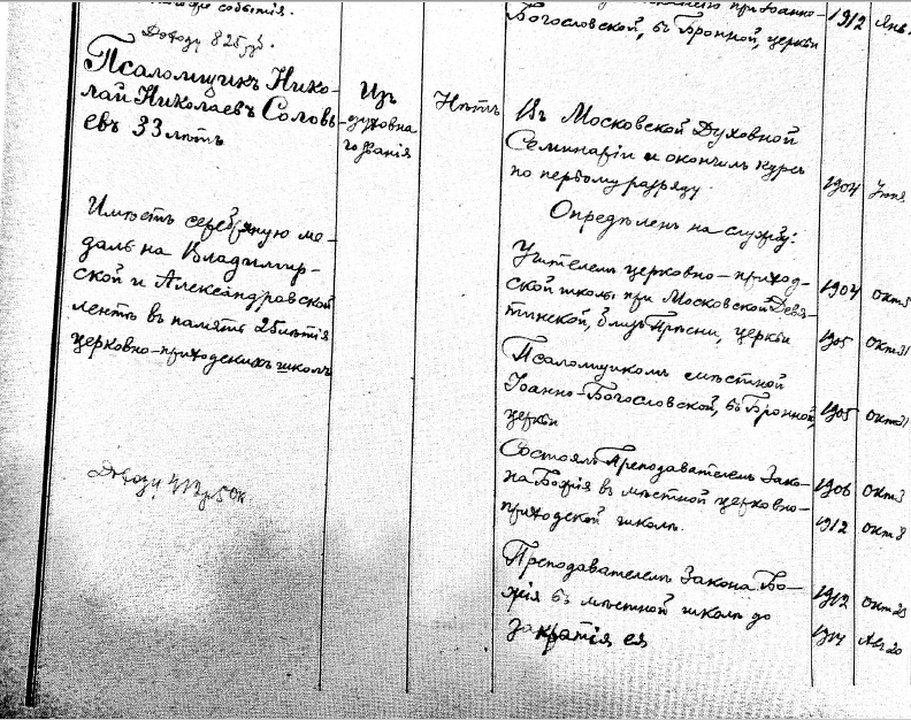 события.
Доходу 825 р.
Псаломщикъ Нико-
лай Николаевъ Соловь-
евъ 33 лѣтъ
Имѣетъ серебряную ме-
даль на Владимир-
ской и Александровской
лентѣ въ память 25лѣтія
церковно-приходскихъ школъ
Доходу
Изъ
духовна
го званія
Нѣтъ
при Іоанно-
Богословской, въ Бронной, церкви
Въ Московской Духовной
Семинаріи и окончилъ курсъ
по первому разряду.
Опредѣленъ на службу:
Учителемъ церковно-приход-
ской школы при Московской Девя-
тинской, близъ Прѣсни, церкви
Псаломщикомъ мѣстной
Іоанно-Богословской, въ Бронной,
церкви
Состоялъ Преподавателемъ Зако-
на Божія въ мѣстной церковно-
приходской школѣ.
Преподавателемъ Закона Бо-
жія въ мѣстной школѣ до
закрытія ея
1912 Янв.
1904 Іюня
1904 Окт
1905 Окт 31
1905 Окт 31
1906 Окт
1912 Окт 8
1912 Окт 23
1914 Авг 20